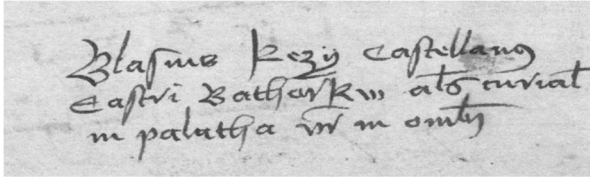 Blasius Kezy Castellanus
Castri Bathorkw als curial
in palatha in om